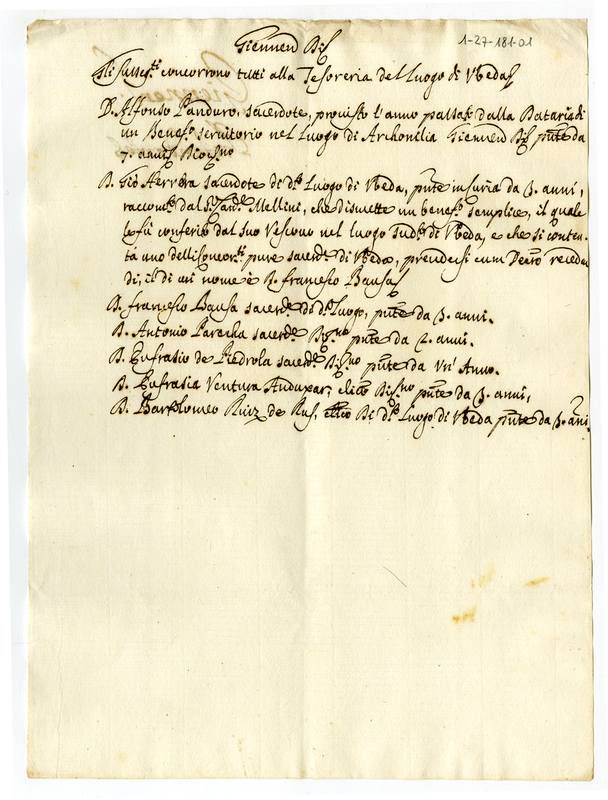 1-27-181-01
Giennen Dis
Gli susseg.ti concorrono tutti alla Tesoreria del luogo di Vbeda
D. Alfonso Panduro, sacerdote, provisto l'anno passato dalla Dataria di
un Benef.o servitorio nel luogo di Archonilia Giennen Dis pñte da
7. anni
D. Gio Herrera sacerdote di d.o Luogo di Vbeda, pñte in Curia da 3. anni,
raccom.to dal S. Mellini, che dismette un benef.o semplice, il quale
le fù conferito dal suo Vescovo nel luogo sud.o di Vbeda, e che si conten-
ta uno delli concor.ti pure sacerd.e di Vbeda, prendersi cum Decreto receden
di, il di cui nome è D. Francesco Bausa
D. Francesco Bausa sacerd.e di d.o luogo, pñte da 3. anni.
D. Antonio Pareilla sacerd.e pñte da 2. anni.
D. Eufrasio de Piedrola sacerd.e pñte da vn' Anno.
D. Eufrasio Ventura Anduxar, clico pñte da 3. anni,
D. Bartolomeo Ruiz de Rus, clico Di d.o Luogo di Vbeda pñte da 3. anni